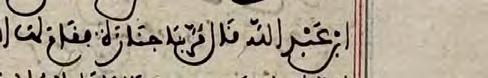 ابن عبد الله قال مر بنا جنازة فقام لها ا